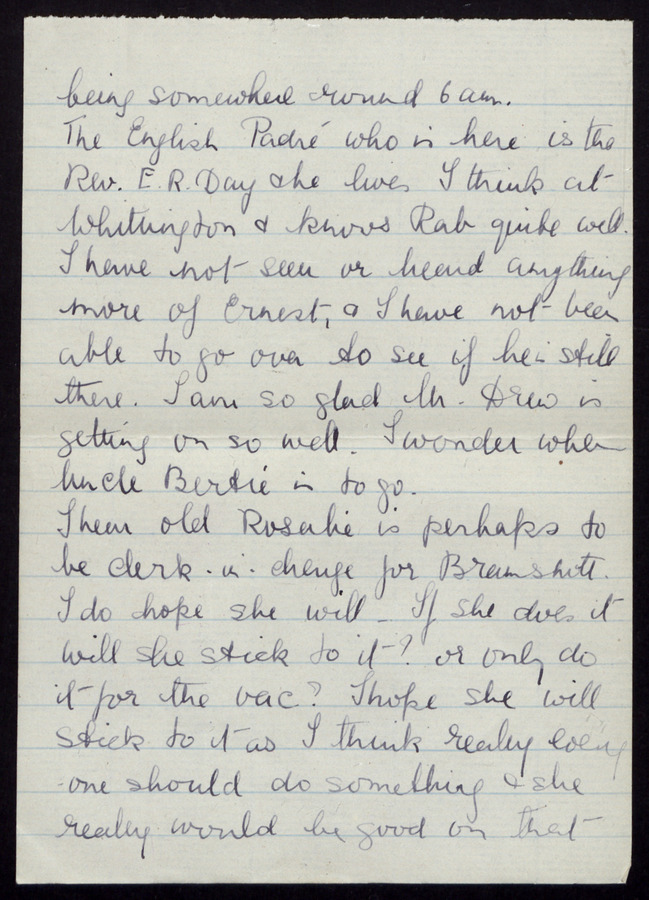 being somewhere round 6 am.
The English Padré who is here is the
Rev. E.R. Day & he lives I think at
Whittington & knows Rab quite well.
I have not seen or heard anything
more of Ernest, & I have not been
able to go over to see if he is still
there. I am so glad Mr. Drew is
getting on so well. I wonder when
Uncle Bertie is to go.
I hear old Rosalie is perhaps to
be clerk-in-charge for Bramshott.
I do hope she will - If she does it
will she stick to it? or only do
it for the vac? I hope she will
stick to it as I think really every
-one should do something & she
really would be good on that